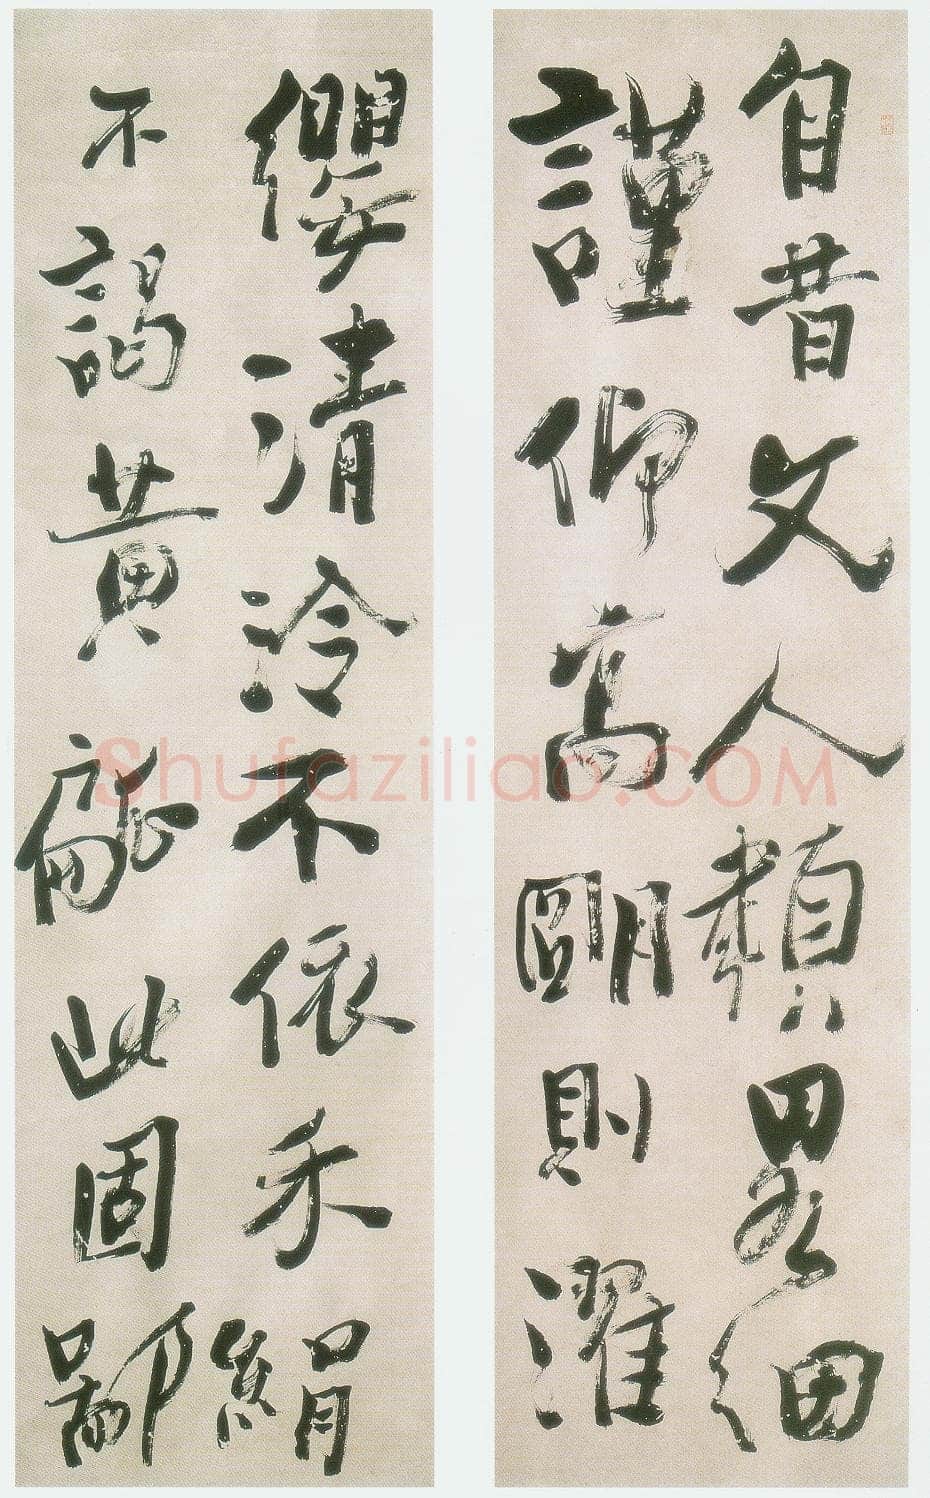 自昔文人類畧細
謹仰高朙則濯
纓清泠不依禾絹
不謁黃此固鄙
Shufaziliao.COM